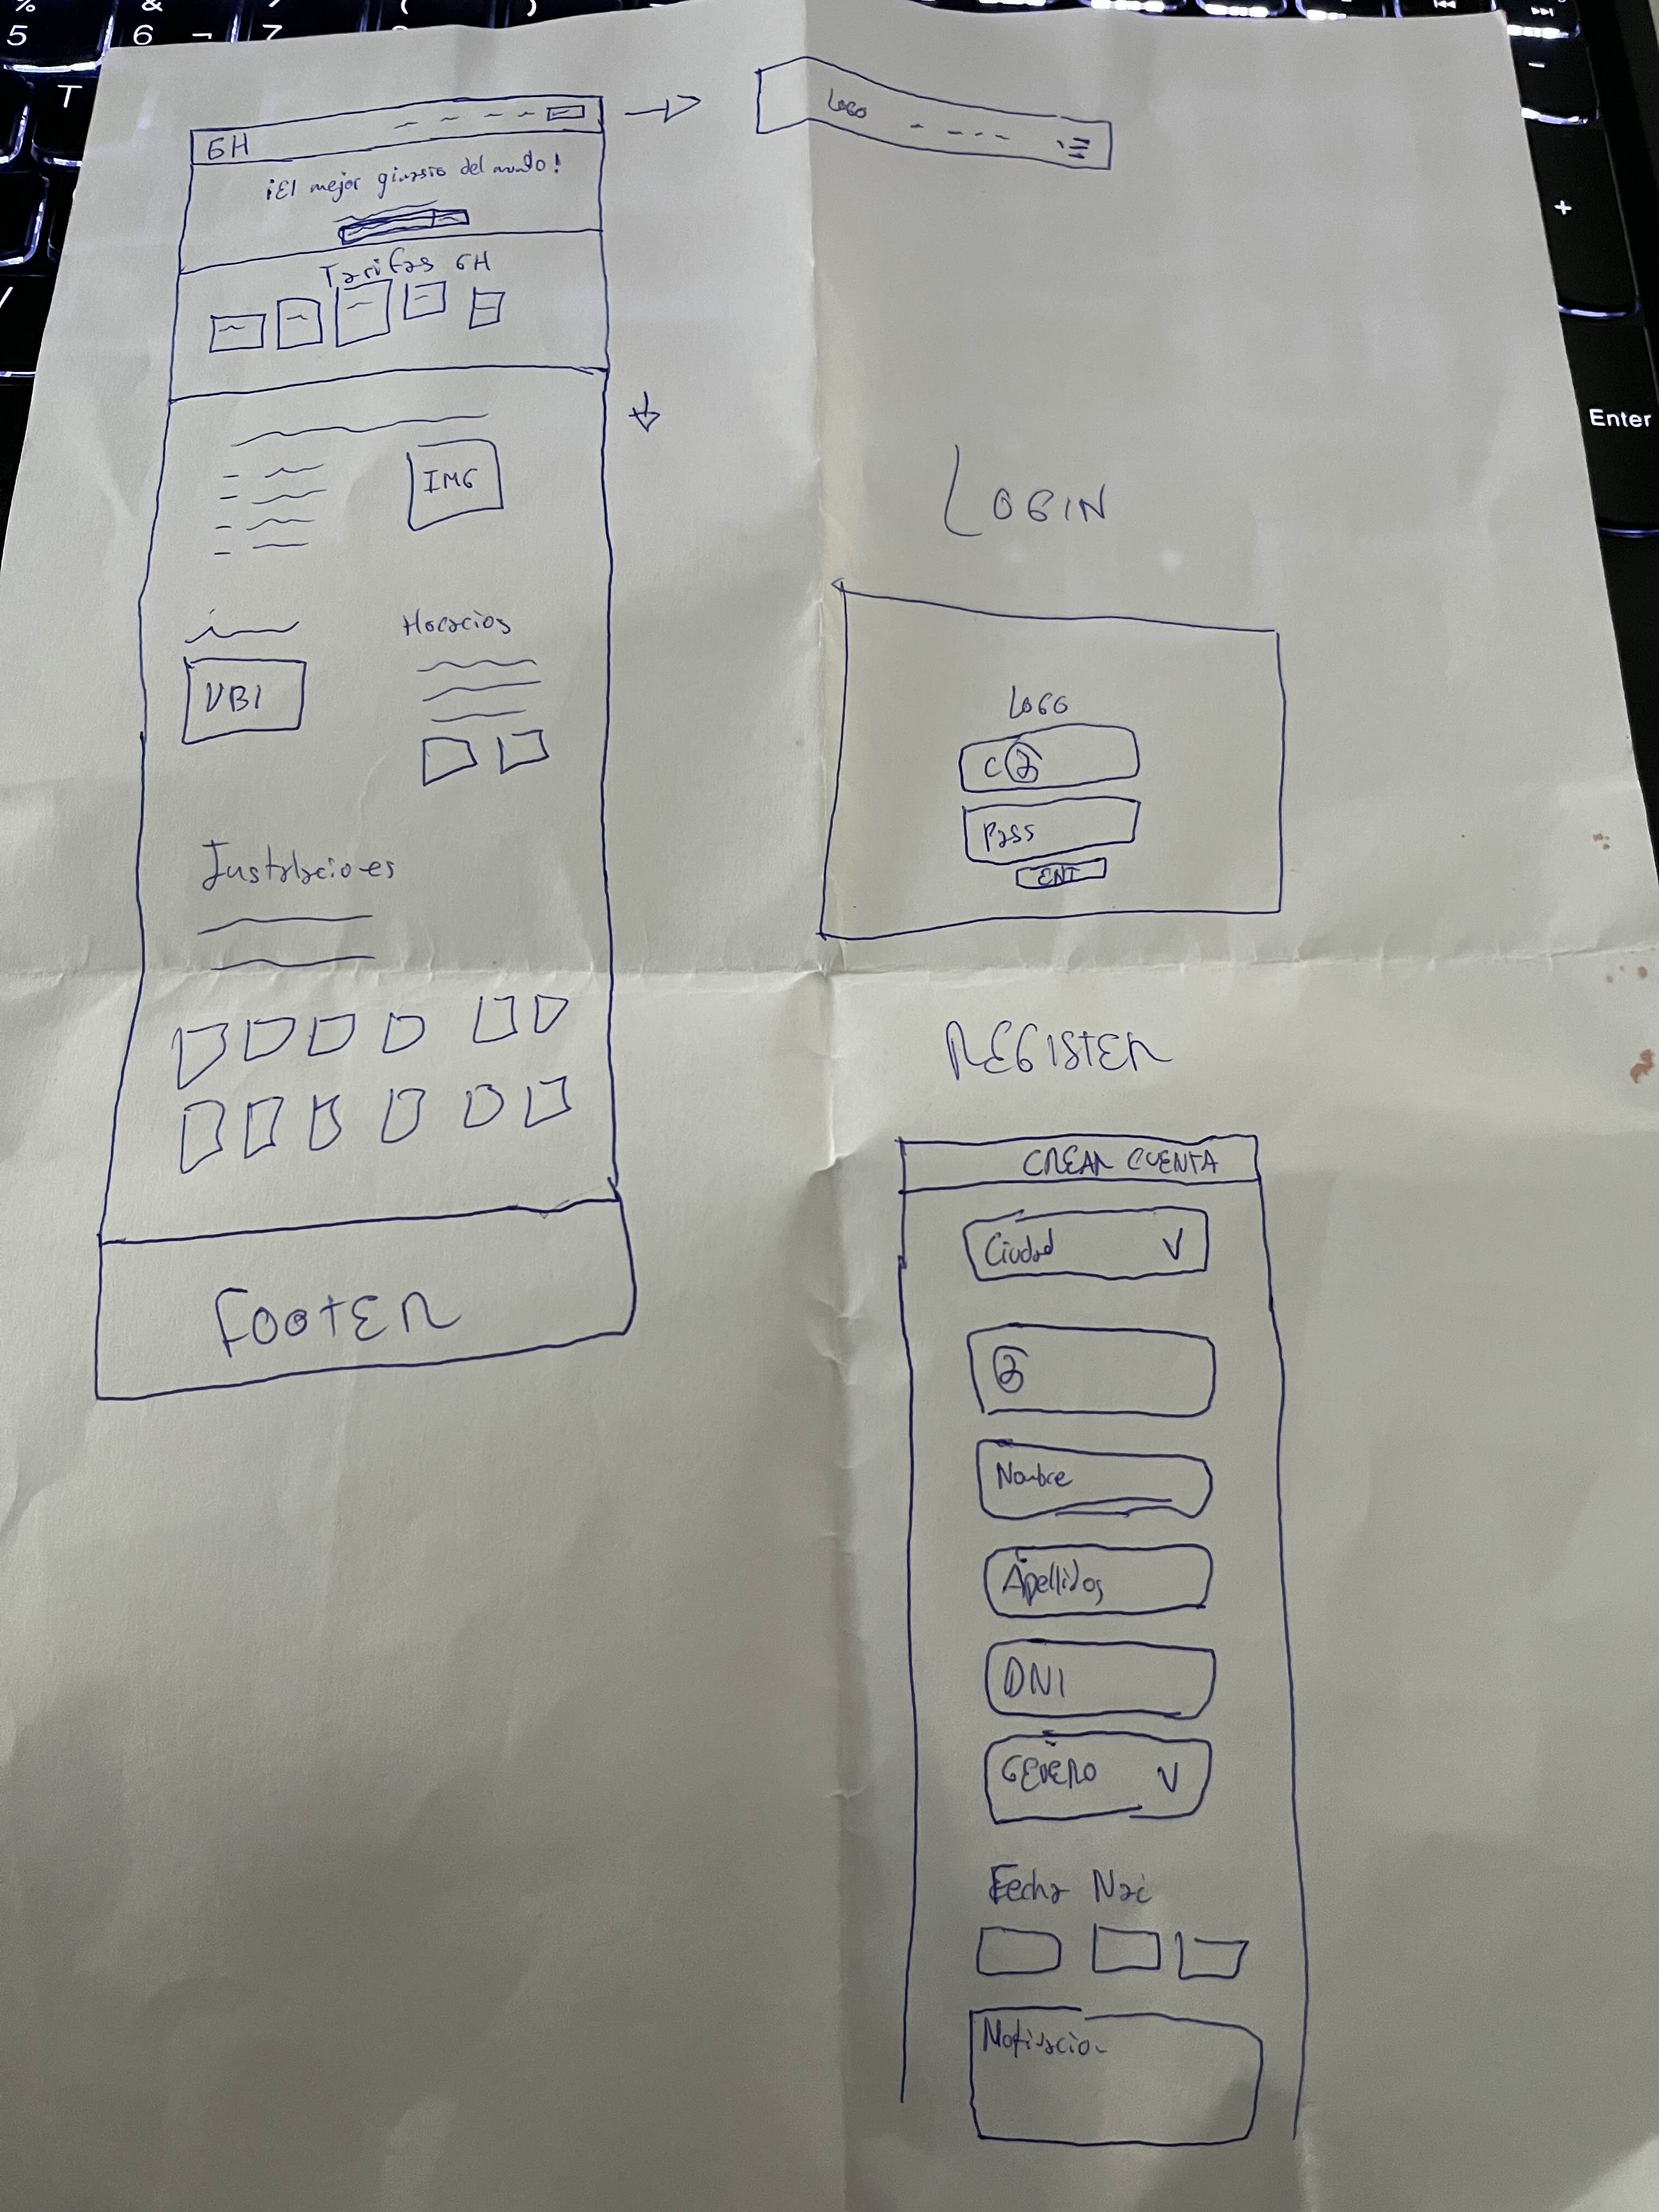 GH
¡El mejor gimnasio del mundo!
Tarifas GH
IMG
UBI
Horarios
Instalaciones
FOOTER
LOGO
LOGIN
LOGO
C@
Pass
ENT
REGISTER
CREAR CUENTA
Ciudad V
@
Nombre
Apellidos
DNI
GENERO V
Fecha Nac
Motivacion
% & / ( )
5 6 ¬ 7
T
+
Enter